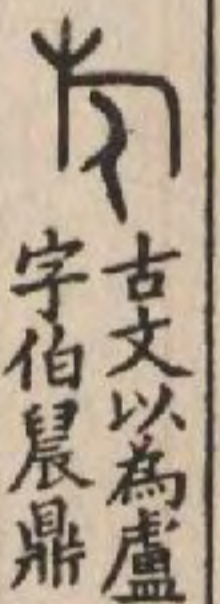 古文以為盧
字伯晨鼎